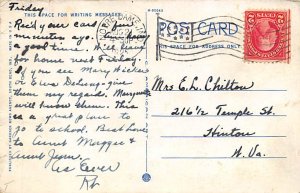 Friday
THIS SPACE FOR WRITING MESSAGES
POST CARD
THIS SPACE FOR ADDRESS ONLY
Rec'd your card
minutes ago. Am having
a good time. Will leave
for home next Friday.
If you see Mary Hicks
or Eva give
them my regards.
will know them. This
is a great place to
go to school. Best love
to Aunt Maggie &
Aunt Jen.
As Ever
Mrs E. L. Chilton
216 1/2 Temple St.
Hinton
W. Va.